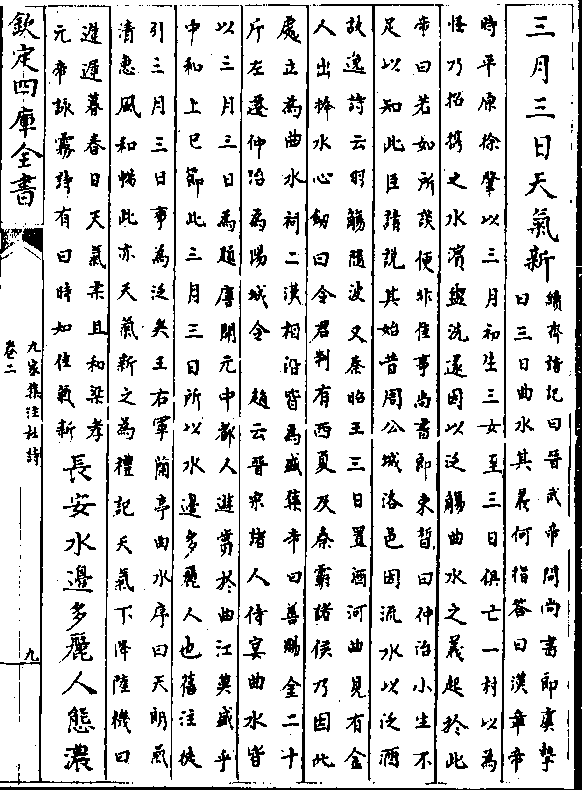 三月三日天氣新
續齊諧記曰晉武帝問尚書郎虞摯
曰三日曲水其義何指答曰漢章帝
時平原徐肇以三月初生三女至三日俱亡一村以為
怪乃招携之水濱盥洗遂因以泛觴曲水之義起於此
帝曰若如所談便非佳事尚書郎束晳曰仲治小生不
足以知此臣請說其始昔周公城洛邑因流水以泛酒
故逸詩云羽觴隨波又秦昭王三日置酒河曲見有金
人出捧水心劒曰令君制有西夏及秦霸諸侯乃因此
處立為曲水祠二漢相沿皆為盛集帝曰善賜金二十
斤左遷仲治為陽城令 趙云晉宋諸人侍宴曲水皆
以三月三日為題唐開元中都人遊賞於曲江莫盛乎
中和上巳節此三月三日所以水邊多麗人也舊注徒
引三月三日事為泛矣王右軍蘭亭曲水序曰天朗氣
清惠風和暢此亦天氣新之為禮記天氣下降陸機曰
遲遲暮春日天氣柔且和梁孝
元帝詠霧詩有曰時如佳氣新
長安水邊多麗人態濃
欽定四庫全書
九家集注杜詩
卷二
九